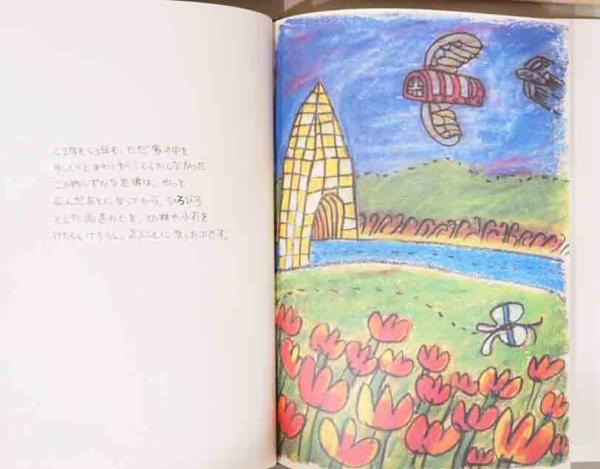 くる年もくる年も、ただ家の中を
ゆっくりとまわり歩くことしかしなかった
この物しずかな老嬢は、やっと
死んだあとになってから、ひろびろ
とした
の上を、
や小石を
けちらしけちらし、走ることになったのです。